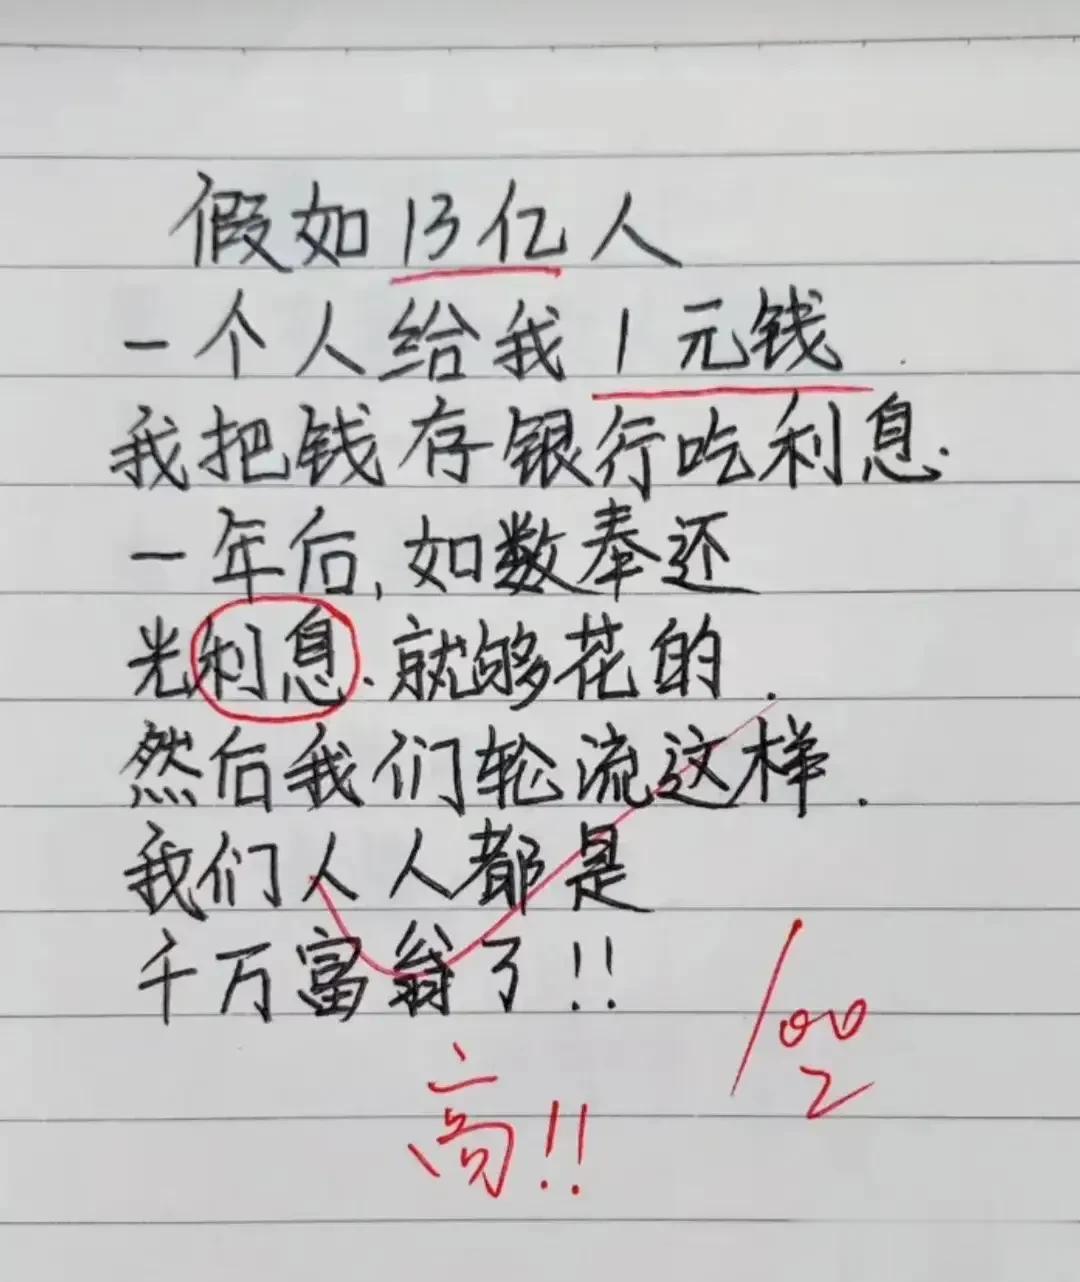 假如13亿人
一个人给我1元钱.
我把钱存银行吃利息.
一年后,如数奉还
光利息.就够花的.
然后我们轮流这样.
我们人人都是
千万富翁了!!
100
高!!